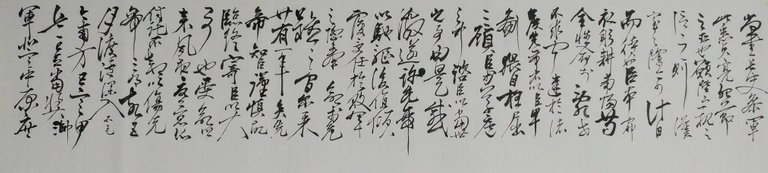 尚書長史參軍
此悉貞亮死節
之臣也願陛下親之
信之則漢
室之隆可計日
而待也臣本布衣
躬耕南陽苟
全性命於亂世
不求聞達於諸
侯先帝不以臣卑
鄙猥自枉屈
三顧臣於草廬
之中諮臣以當世
之事由是感激
遂許先帝
以驅馳後值傾
覆受任於敗軍
之際奉命危
難之間爾來
廿有一年矣先
帝知臣謹慎故
臨崩寄臣以大
事也受命
以來夙夜憂歎恐
付託不效以傷先
帝之明故五
月渡瀘深入不毛
今南方已定甲
兵已足當獎帥三
軍北定中原庶